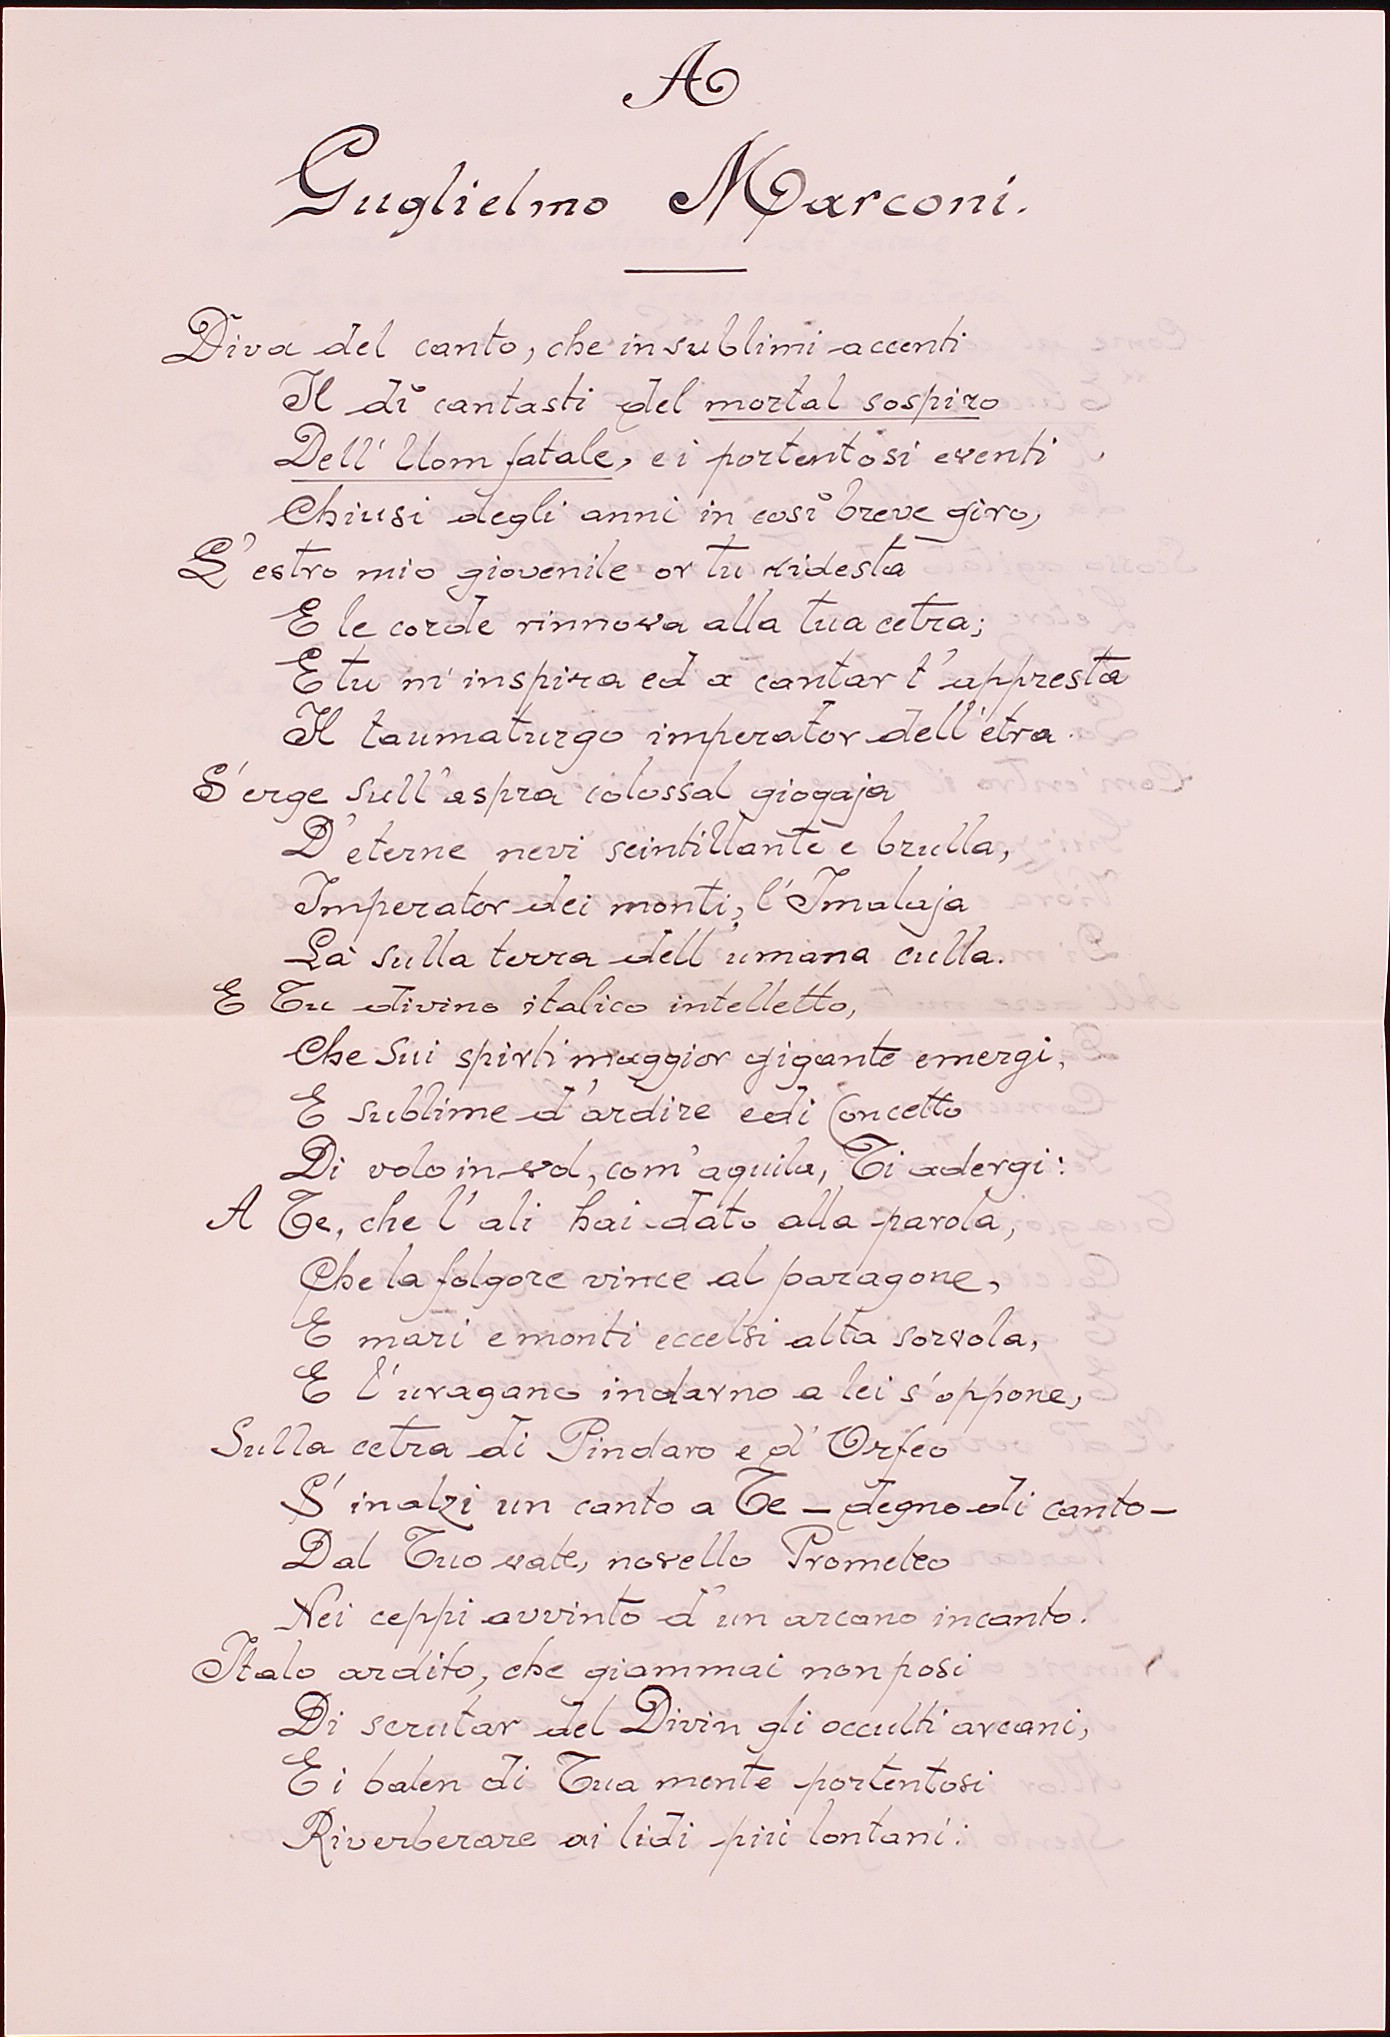 A
Guglielmo Marconi.
Diva del canto, che in sublimi accenti
Il dì cantasti del mortal sospiro
Dell'Uom fatale, e i portentosi eventi
Chiusi degli anni in così breve giro,
L'estro mio giovenile or tu ridesta
E le corde rinnova alla tua cetra;
E tu m'inspira ed a cantar t'appresta
Il taumaturgo imperator dell'etra.
S'erge sull'aspra colossal giogaja
D'eterne nevi scintillante e brulla,
Imperator dei monti, l'Imalaja
Là sulla terra dell'umana culla.
E Tu divino italico intelletto,
Che sui spirti maggior gigante emergi,
E sublime d'ardire e di concetto
Di volo in vol, com'aquila, Ti adergi:
A Te, che l'ali hai dato alla parola,
Che la folgore vince al paragone,
E mari e monti eccelsi alta sorvola,
E l'uragano indarno a lei s'oppone,
Sulla cetra di Pindaro e d'Orfeo
S'inalzi un canto a Te – degno di canto –
Dal Tuo vate, novello Prometeo
Nei ceppi avvinto d'un arcano incanto.
Italo ardito, che giammai non posi
Di scrutar del Divin gli occulti arcani,
E i balen di Tua mente portentosi
Riverberare ai lidi più lontani: